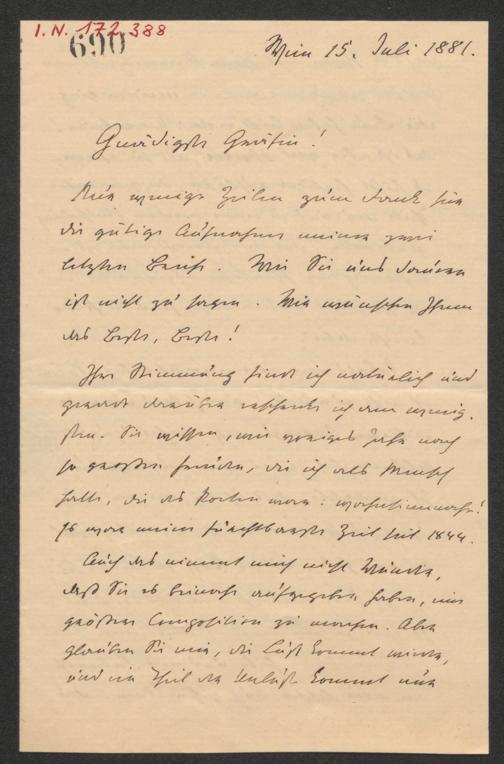 I. N. 172.388
690
Wien 15. Juli 1881.
Gnädigste Gräfin!
Nur wenige Zeilen zum Dank für
die gütige Aufnahme meiner zwei
letzten Briefe. Wie Sie uns dauern
ist nicht zu sagen. Wir wünschen Ihnen
das Beste, Beste!
Ihre Stimmung finde ich natürlich und
gerade darüber erschrecke ich am wenig-
sten. Sie wissen, wie wenige Jahre nach
so großen Freuden, die ich als Mensch
hatte, die des Poeten waren:
Es war meine fruchtbarste Zeit seit 1844.
Auch das nimmt mich nicht Wunder,
daß Sie es beinahe aufgegeben haben, eine
größere Composition zu machen. Aber
glauben Sie mir, die Lust kommt wieder,
und ein Theil der Unlust kommt nur